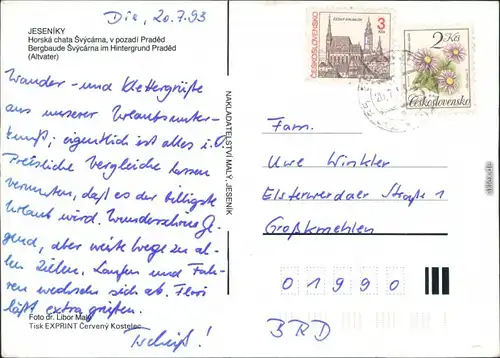 Die, 20.7.93
JESENÍKY
Horská chata Švýcárna, v pozadí Praděd
Bergbaude Švýcárna im Hintergrund Praděd
(Altvater)
Wander- und Klettergrüße
aus unserer Urlaubsunter-
kunft; eigentlich ist alles i.O.
Preisliche Vergleiche lassen
vermuten, daß es der billigste
Urlaub wird. Wunderschöne Ge-
gend, aber weite Wege zu al-
len Zielen. Laufen und Fah-
ren wechseln sich ab. Flori
läßt extra grüßen.
Foto dr. Libor Malý
Tisk EXPRINT Červený Kostelec
Tschüß!
NAKLADATELSTVÍ MALÝ, JESENÍK
ČESKÝ KRUMLOV
3 Kčs
ČESKOSLOVENSKO
2 Kčs
Československo
Fam.
Uwe Winkler
Elsterwerdaer Straße 1
Großkmehlen
01990
BRD